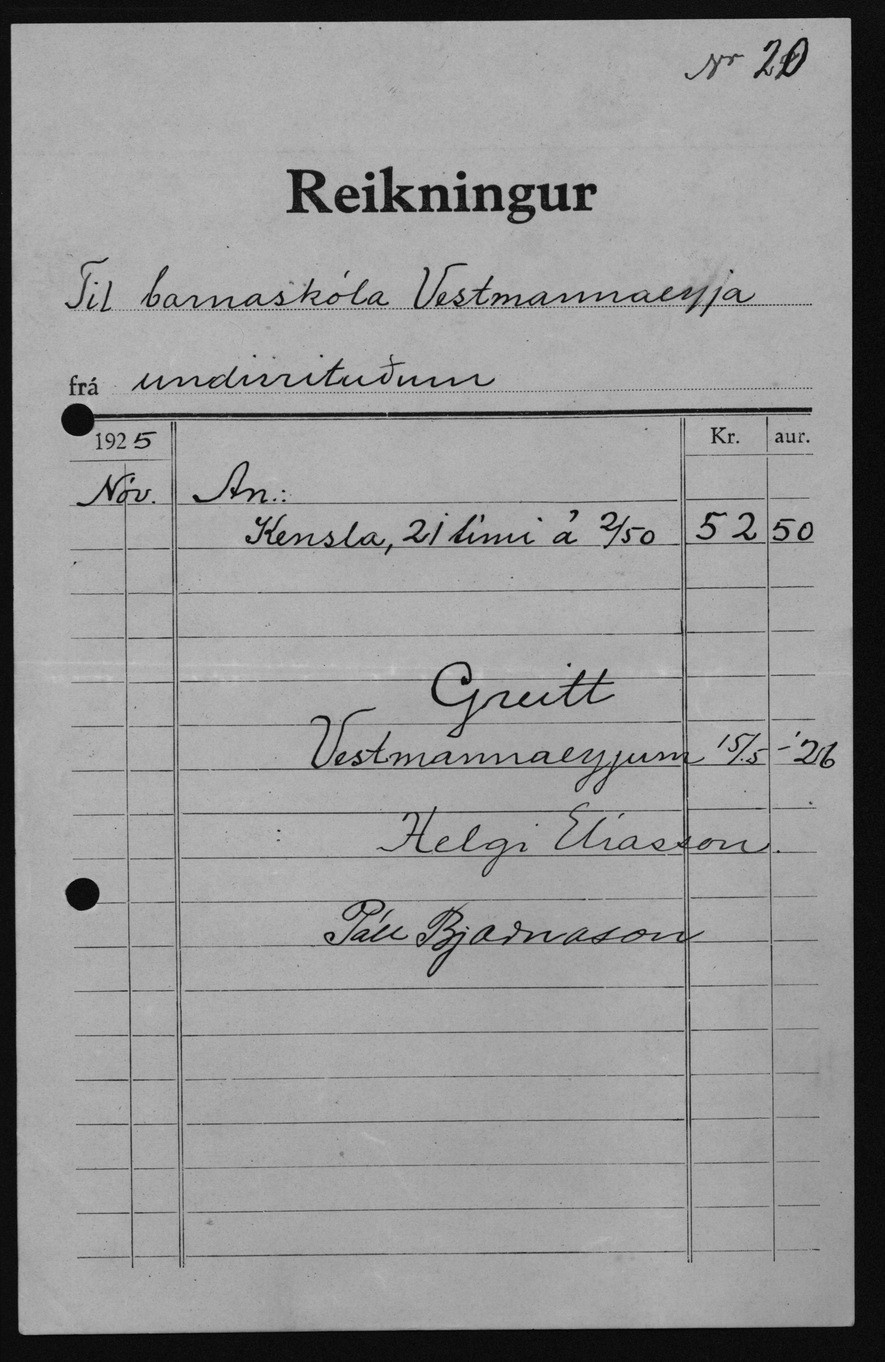 Nr 20
Reikningur
Til barnaskóla Vestmannaeyja
frá undirrituðum
1925 Kr. aur.
Nóv. An.:
Kensla, 21 tími á 2/50 52 50
Greitt
Vestmannaeyjum 15/5 - '26
Helgi Elíasson.
Páll Bjarnason